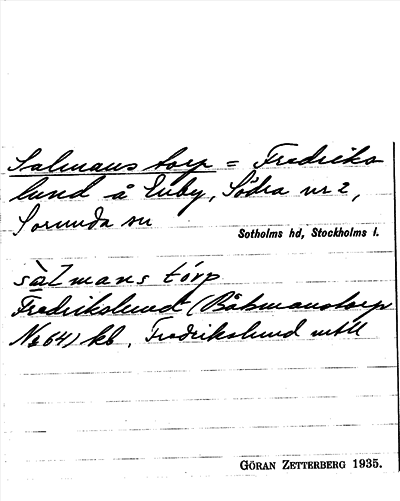 Salmans torp = Fredriks
lund å Enby, Södra nr 2,
Sorunda sn
Sotholms hd, Stockholms l.
sàlmans tórp
Fredrikslund (Båtsmanstorp
No 64) kb. Fredrikslund mtll
GÖRAN ZETTERBERG 1935.